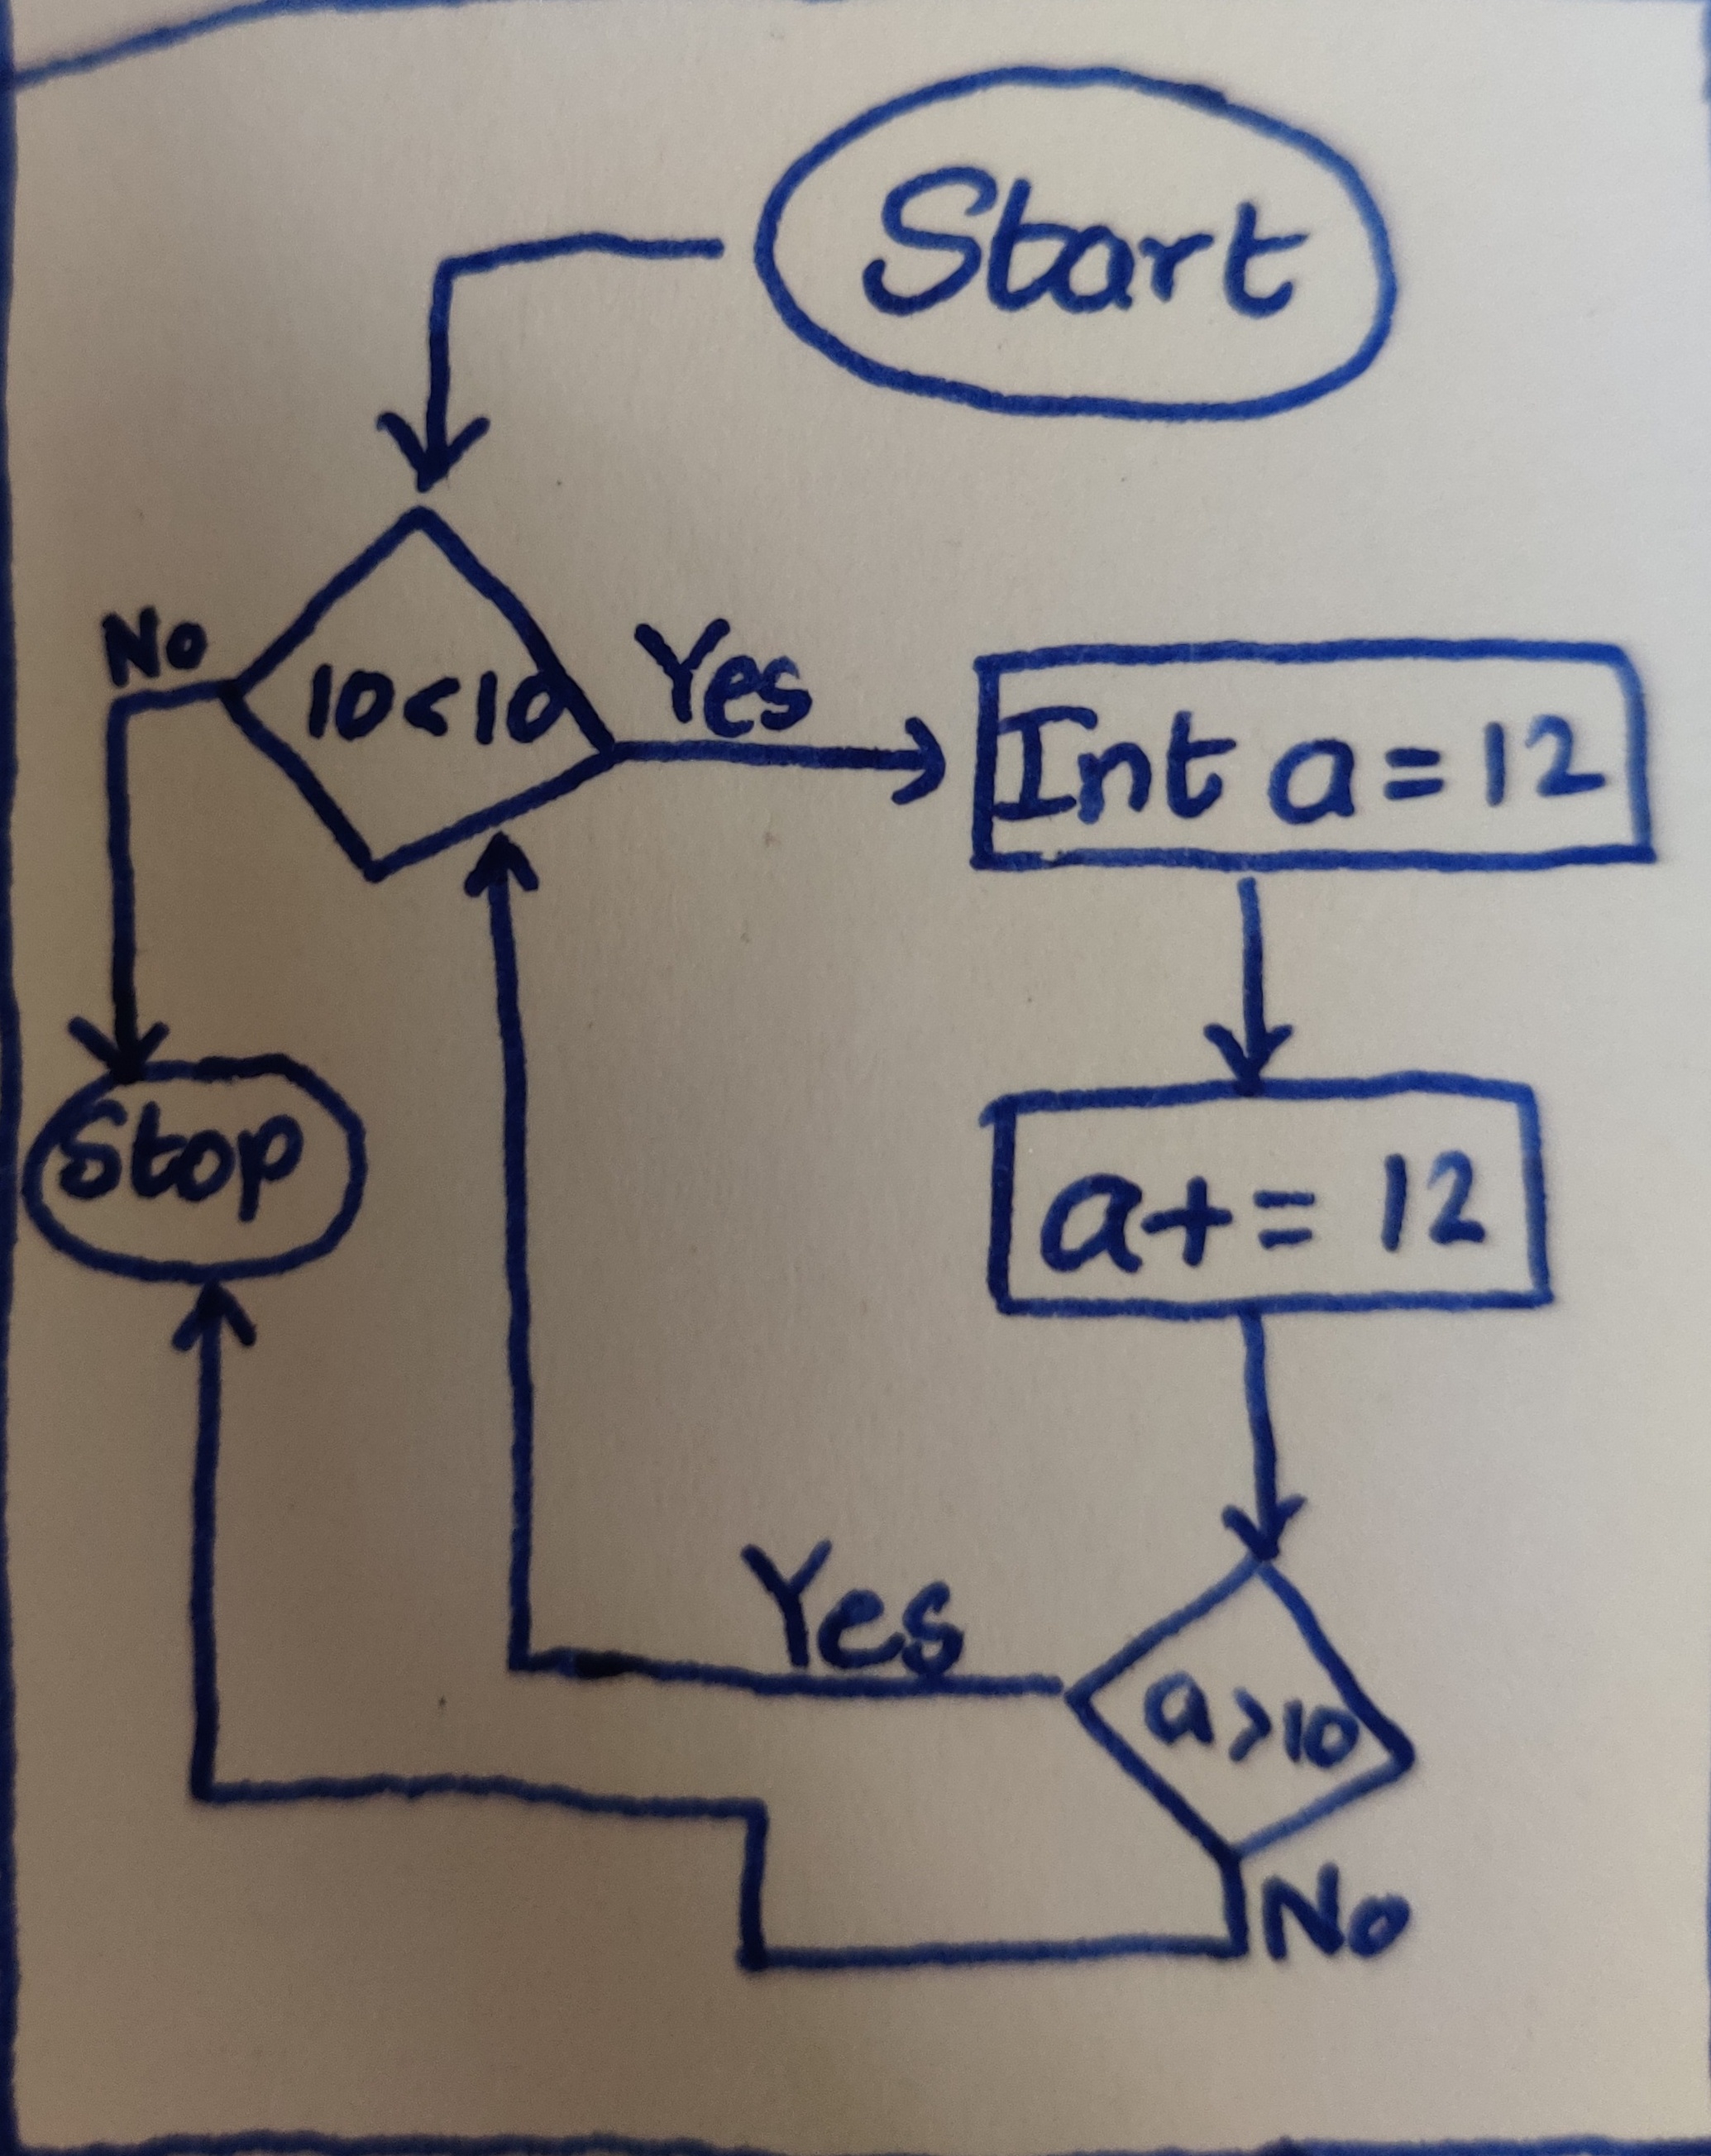 Start
No
10<10
Yes
Int a=12
Stop
a+= 12
Yes
a>10
No